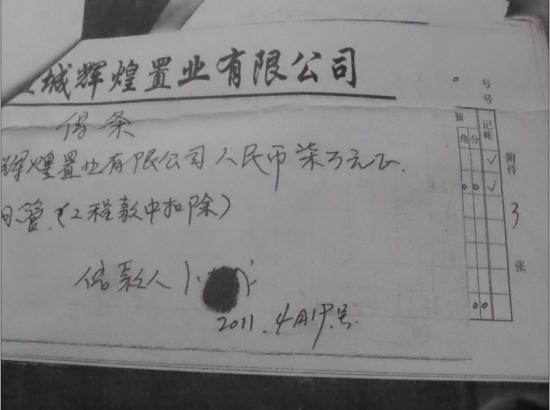 城辉煌置业有限公司
借条
辉煌置业有限公司人民币柒万元正.
(工程款中扣除)
借款人
2011.4月19号.
号
号
记帐
角 分
附件
3
张